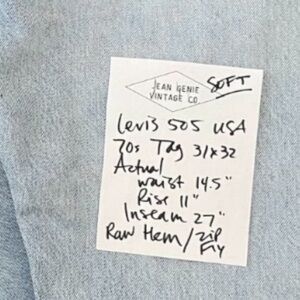 JEAN GENIE
VINTAGE CO.
SOFT
Levis 505 USA
70s Tag 31x32
Actual
waist 14.5"
Rise 11"
Inseam 27"
Raw Hem / zip
Fly